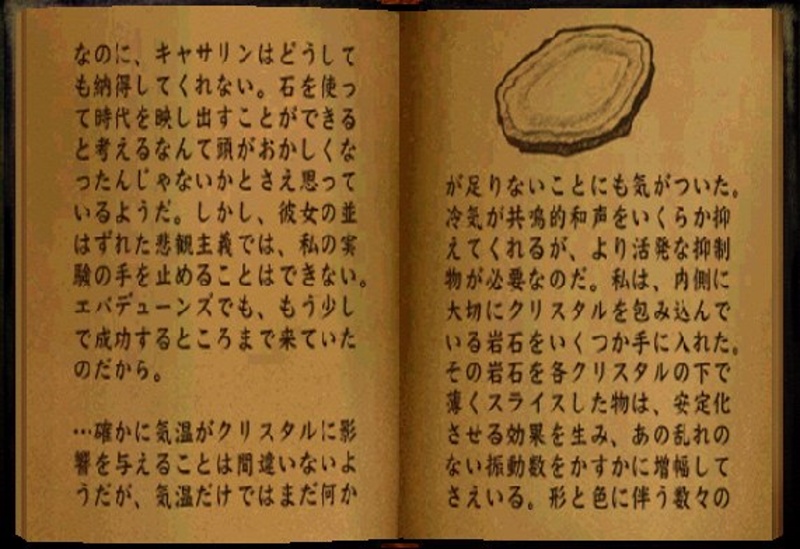 なのに、キャサリンはどうして
も納得してくれない。石を使っ
て時代を映し出すことができる
と考えるなんて頭がおかしくな
ったんじゃないかとさえ思って
いるようだ。しかし、彼女の並
はずれた悲観主義では、私の実
験の手を止めることはできない。
エバデューンズでも、もう少し
で成功するところまで来ていた
のだから。
…確かに気温がクリスタルに影
響を与えることは間違いないよ
うだが、気温だけではまだ何か
が足りないことにも気がついた。
冷気が共鳴的和声をいくらか抑
えてくれるが、より活発な抑制
物が必要なのだ。私は、内側に
大切にクリスタルを包み込んで
いる岩石をいくつか手に入れた。
その岩石を各クリスタルの下で
薄くスライスした物は、安定化
させる効果を生み、あの乱れの
ない振動数をかすかに増幅して
さえいる。形と色に伴う数々の